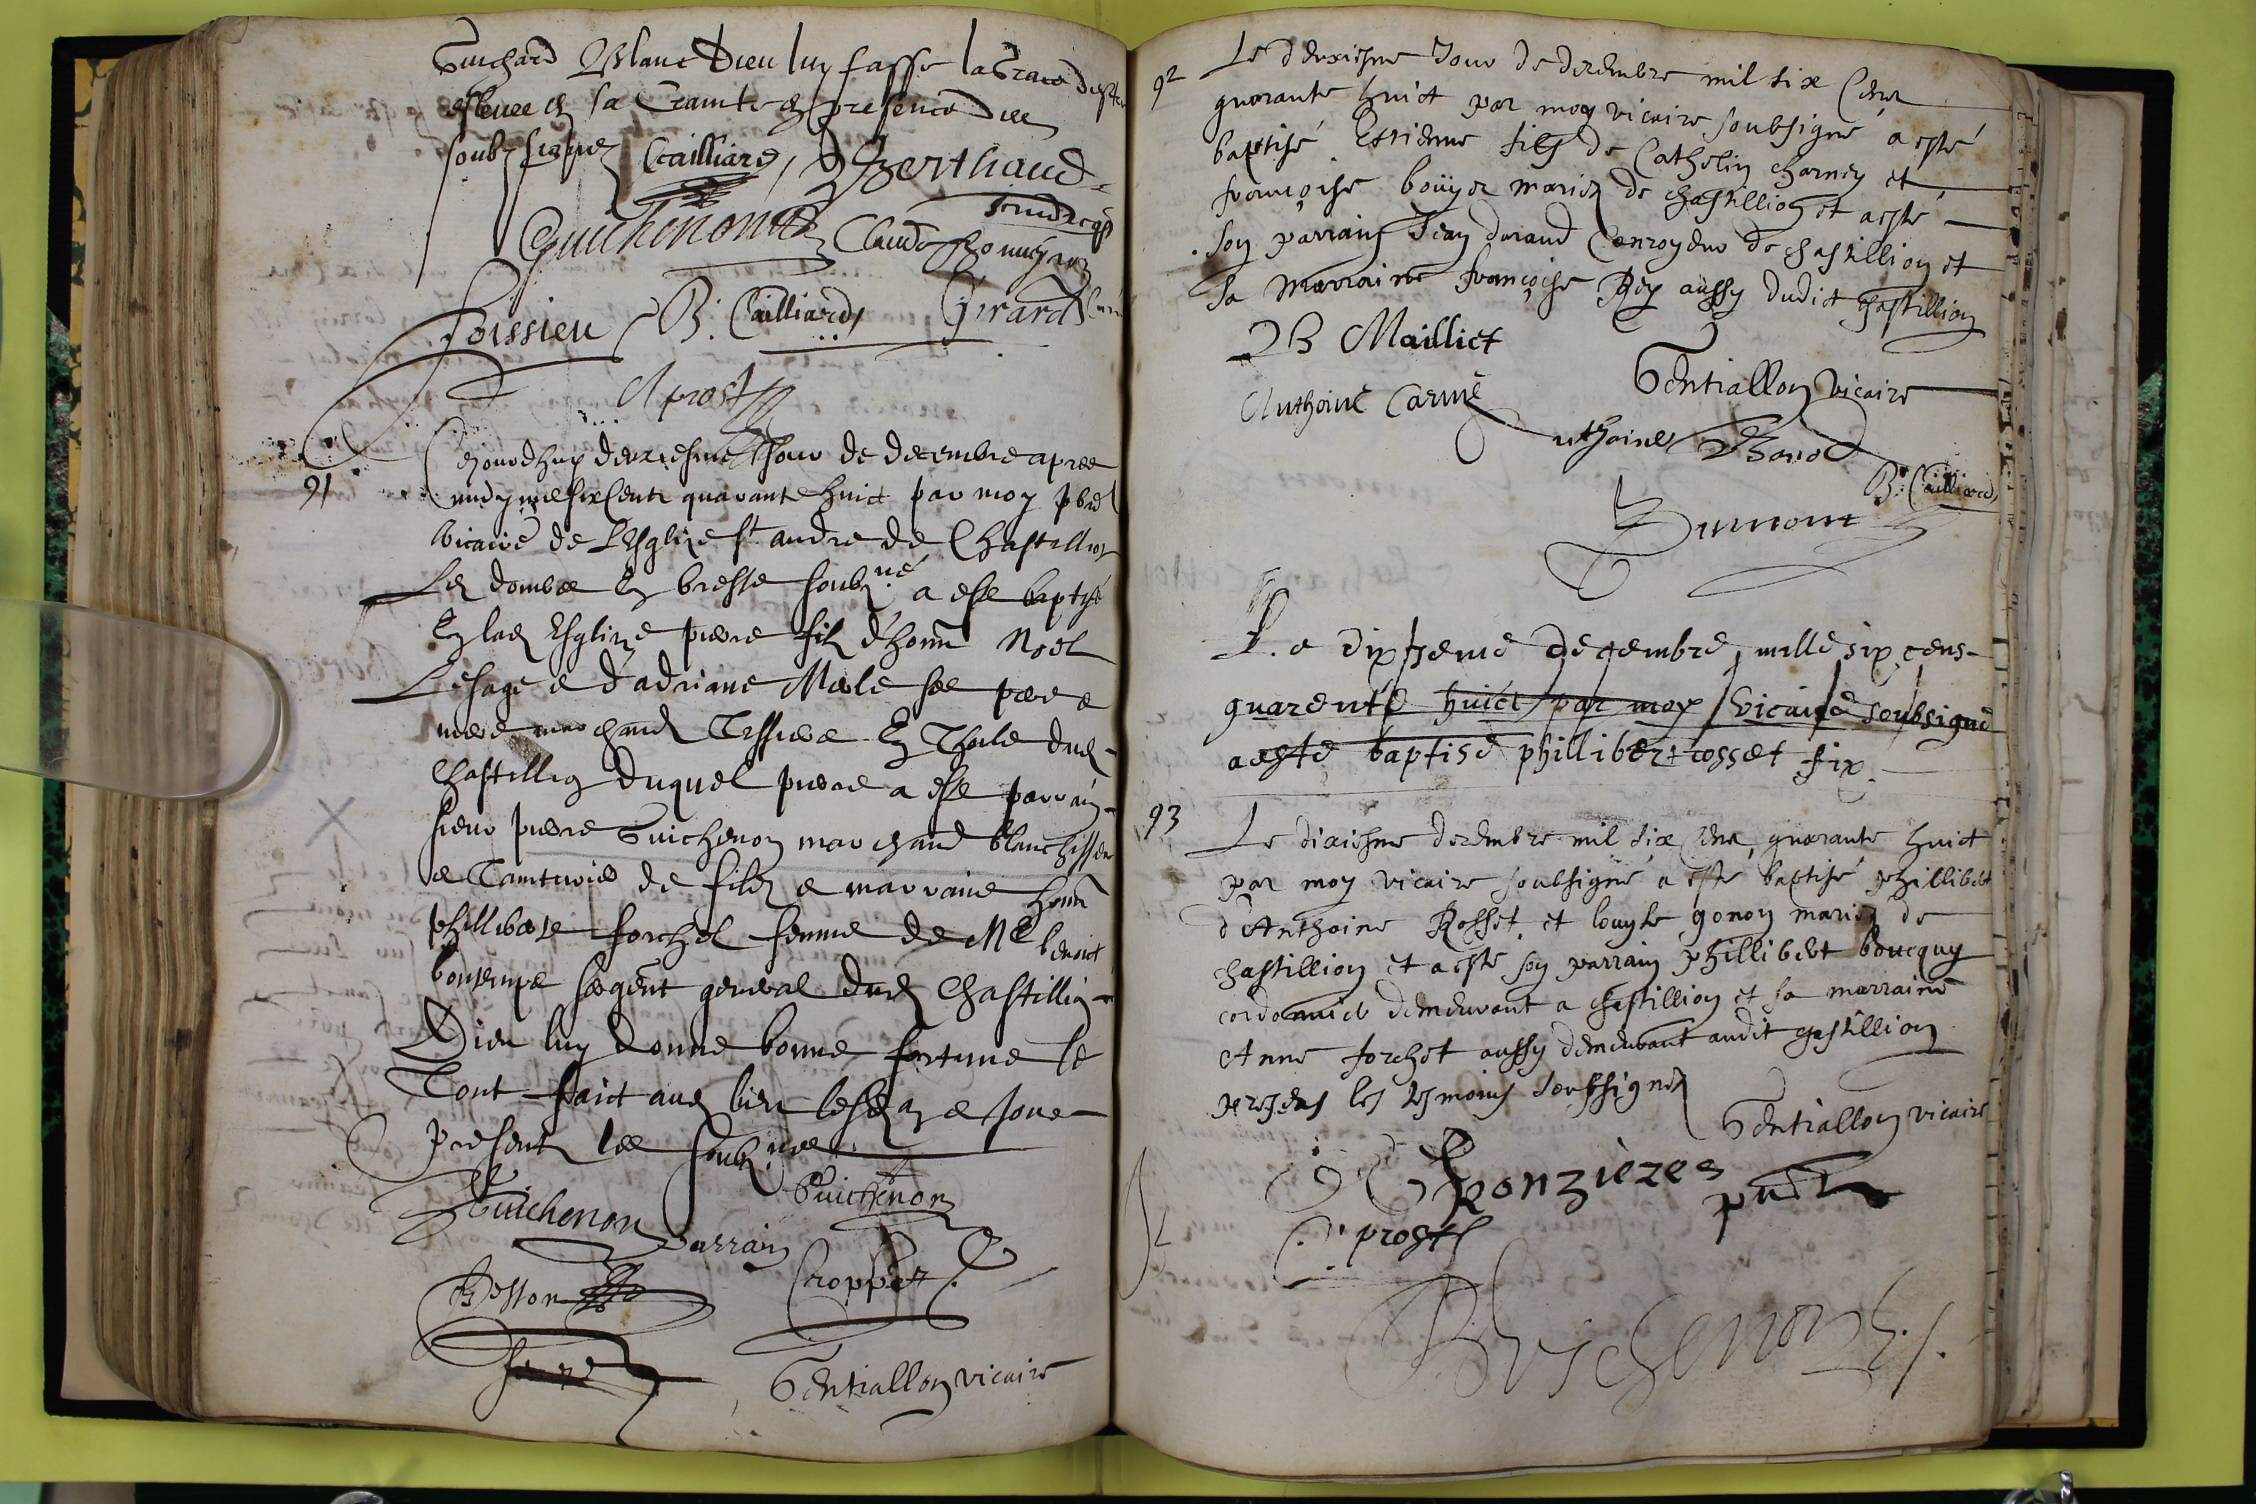 Guichard Blanc Dieu luy fasse la Grace destre
eslevee en sa Crainte en presence des
soubzsignez Cailliard Berthaud
Guichenon Claude
Foissieu B. Cailliard Girard
A prost
91
Cejourdhuy deuxiesme Jour de decembre apres
midy mil six Centz quarante huict par moy pbre
vicaire de L'Esglize St andre de Chastillion
Les dombes En bresse soubzné a esté baptisé
En lad Esglize pierre filz d'honn Noel
Lesage e d'adriane Mele ses pere e
mere marchand Tissier En Thoile dud
Chastillion duquel pierre a esté parrain
sieur pierre Guichenon marchand blanchisseur
e Tainturier de filz e marraine honn
philliberte forchet femme de Me benoict
bontemps sergent general dud Chastillion
Dieu luy donne bonne fortune le
Tout faict aud lieu lesd an e Jour
presentz les soubznes
Guichenon parrain Guichenon
Beston Cropper
Gentiallon vicaire
92
Le deuxiesme Jour de decembre mil six Cens
quarante huict par moy vicaire soubsigné a esté
baptisé Estienne fils de Cathelin charney et
françoise boüyer mariez de chastillion et a esté
son parrain Jean durand Conroyeur de chastillion et
sa marraine françoise Rey aussy dudict chastillion
B Maillict
Gentiallon vicaire
Anthoine Carme
Anthoine
B. Cailliard
Dumont
Le dixseme decembre, mille six cens
quarente huict par moy vicaire soubsigné
a esté baptisé phillibert cosset fix
93
Le dixiesme decembre mil six Cens, quarante huict
par moy vicaire soubsigné a esté baptisé phillibert
d'Anthoine Rosset, et louyse gonon mariez de
chastillion et a esté son parrain phillibert boucquy
cordonnier demeurant a chastillion et sa marraine
Anne forchet aussy demeurant audit chastillion
presens les tesmoins soussignez
Gentiallon vicaire
Ponzieres
prost
Guichenon